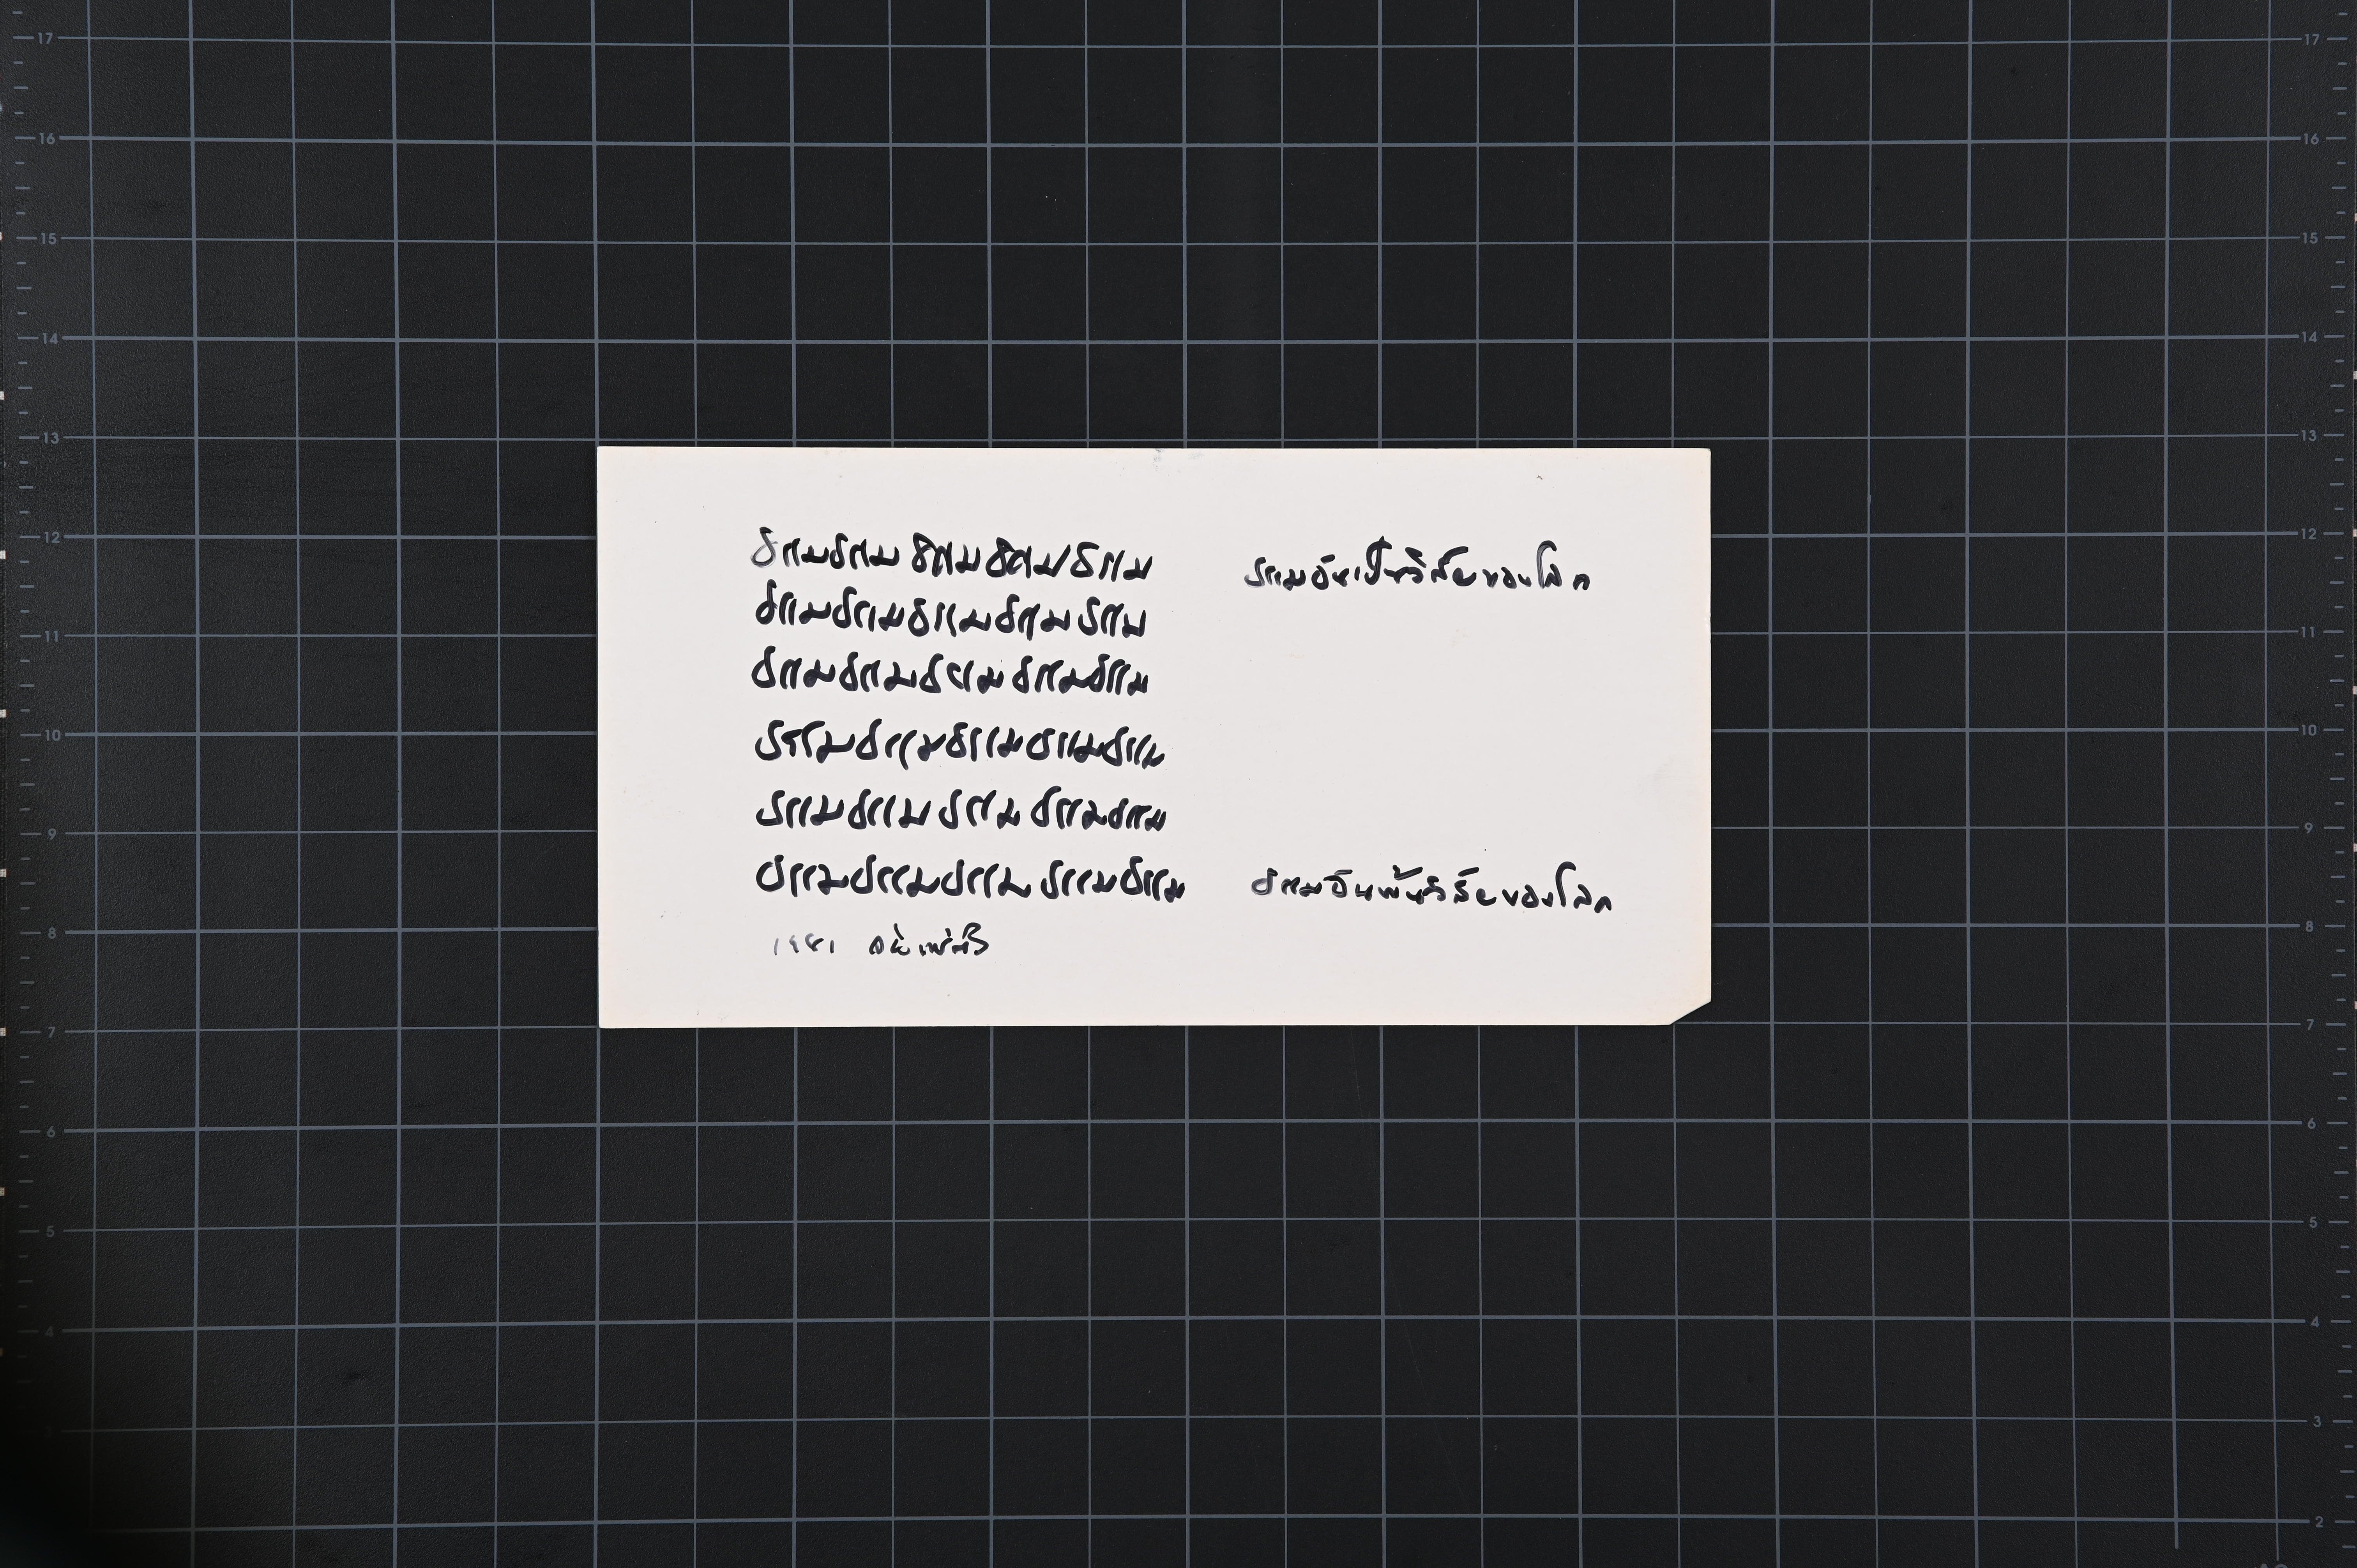 ธรรมธรรมธรรมธรรมธรรม ธรรมอันเป็นวิสัยของโลก
ธรรมธรรมธรรมธรรมธรรม
ธรรมธรรมธรรมธรรมธรรม
ธรรมธรรมธรรมธรรมธรรม
ธรรมธรรมธรรมธรรมธรรม
ธรรมธรรมธรรมธรรมธรรม ธรรมอันพ้นวิสัยของโลก
1981